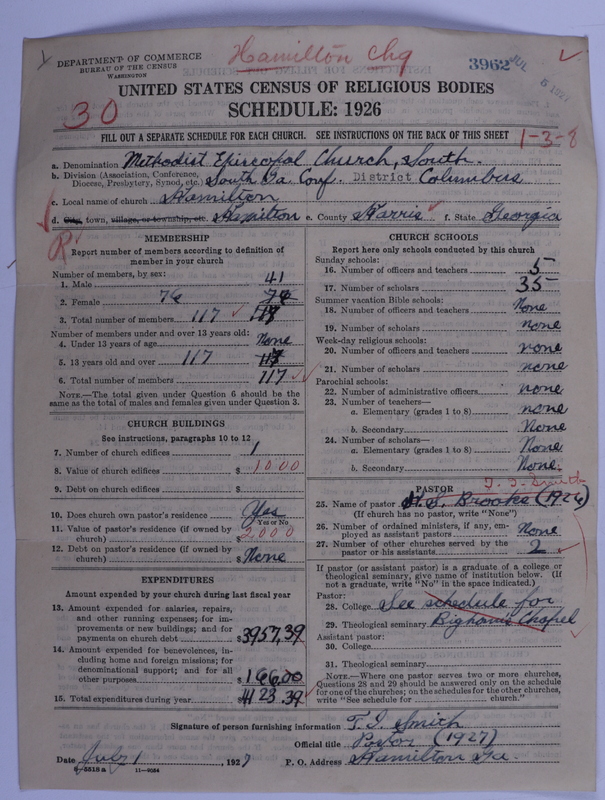 Hamilton Chg
DEPARTMENT OF COMMERCE
BUREAU OF THE CENSUS
WASHINGTON
3962 JUL 5 1927
UNITED STATES CENSUS OF RELIGIOUS BODIES
30
SCHEDULE: 1926
FILL OUT A SEPARATE SCHEDULE FOR EACH CHURCH. SEE INSTRUCTIONS ON THE BACK OF THIS SHEET
1-3-8
a. Denomination Methodist Episcopal Church, South.
b. Division (Association, Conference, Diocese, Presbytery, Synod, etc.) South Ga. Conf. District Columbus
c. Local name of church Hamilton
d. City, town, village, or township, etc. Hamilton e. County Harris f. State Georgia
MEMBERSHIP
Report number of members according to definition of
member in your church
Number of members, by sex:
1. Male 41
2. Female 76
3. Total number of members 117
Number of members under and over 13 years old:
4. Under 13 years of age None
5. 13 years old and over 117
6. Total number of members 117
NOTE.—The total given under Question 6 should be
same as the total of males and females given under Question 3.
CHURCH BUILDINGS
See instructions, paragraphs 10 to 12
7. Number of church edifices 1
8. Value of church edifices $1000
9. Debt on church edifices $
10. Does church own pastor's residence? Yes
Yes or No
11. Value of pastor's residence (if owned by
church) $2000
12. Debt on pastor's residence (if owned by
church) $None
EXPENDITURES
Amount expended by your church during last fiscal year
13. Amount expended for salaries, repairs,
and other running expenses; for im-
provements or new buildings; and for
payments on church debt $3957,39
14. Amount expended for benevolences, in-
cluding home and foreign missions; for
denominational support; and for all
other purposes $166.00
15. Total expenditures during year $4123.39
CHURCH SCHOOLS
Report here only schools conducted by this church
Sunday schools:
16. Number of officers and teachers 5
17. Number of scholars 35
Summer vacation Bible schools:
18. Number of officers and teachers None
19. Number of scholars none
Week-day religious schools:
20. Number of officers and teachers none
21. Number of scholars none
Parochial schools:
22. Number of administrative officers none
23. Number of teachers—
a. Elementary (grades 1 to 8) none
b. Secondary None
24. Number of scholars—
a. Elementary (grades 1 to 8) None
b. Secondary None.
PASTOR
25. Name of pastor H. S. Brooke (1926)
(If church has no pastor, write "None")
26. Number of ordained ministers, if any, em-
ployed as assistant pastors None
27. Number of other churches served by the
pastor or his assistants 2
If pastor (or assistant pastor) is a graduate of a college or
theological seminary, give name of institution below. (If
not a graduate, write "No" in the space indicated.)
Pastor:
28. College See schedule for
29. Theological seminary Bighams Chapel
Assistant pastor:
30. College
31. Theological seminary
NOTE.—Where one pastor serves two or more churches,
Questions 28 and 29 should be answered only on the schedule
for one of the churches; on the schedules for the other churches,
write "See schedule for church."
Signature of person furnishing information T. I. Smith
Official title Pastor (1927)
Date July 1, 1927 P. O. Address Hamilton Ga.
8-5518 a 11—9034